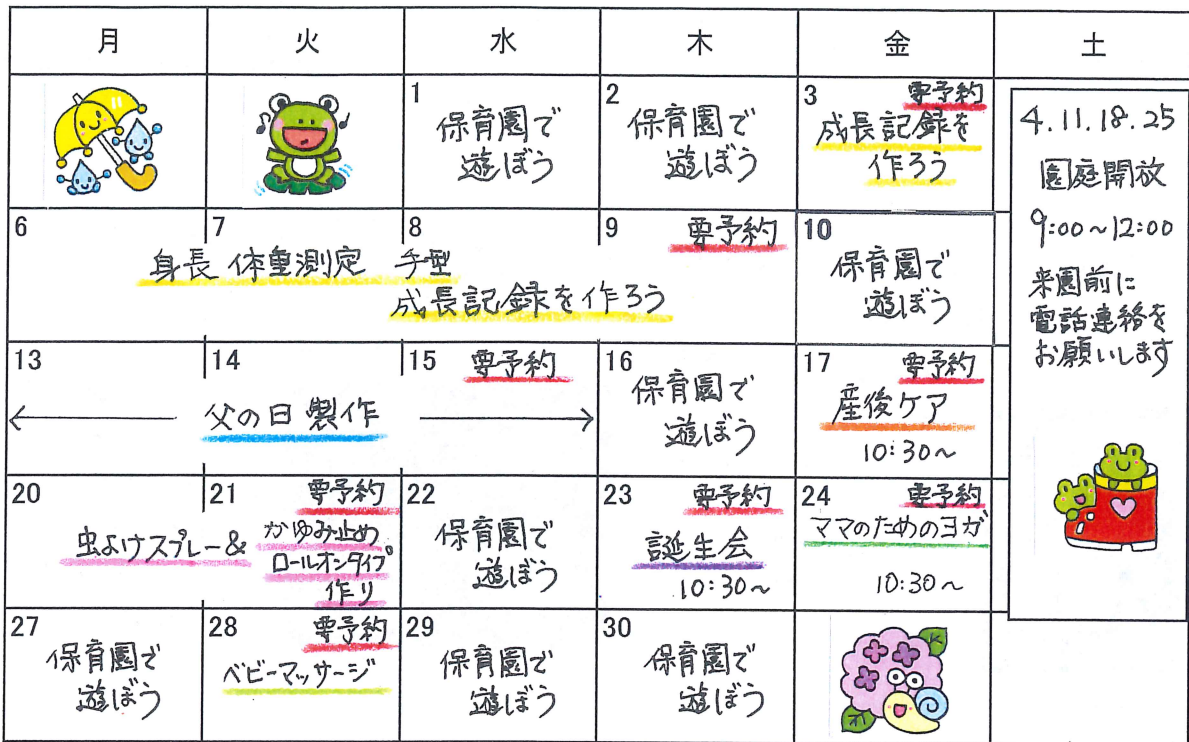 月 火 水 木 金 土
1
保育園で
遊ぼう
2
保育園で
遊ぼう
3 要予約
成長記録を
作ろう
4.11.18.25
園庭開放
9:00~12:00
来園前に
電話連絡を
お願いします
6 7 8 9 要予約
身長 体重測定 手型
成長記録を作ろう
10
保育園で
遊ぼう
13 14 15 要予約
父の日 製作
16
保育園で
遊ぼう
17 要予約
産後ケア
10:30~
20 21 要予約
虫よけスプレー& かゆみ止め
ロールオンタイプ
作り
22
保育園で
遊ぼう
23 要予約
誕生会
10:30~
24 要予約
ママのためのヨガ
10:30~
27
保育園で
遊ぼう
28 要予約
ベビーマッサージ
29
保育園で
遊ぼう
30
保育園で
遊ぼう